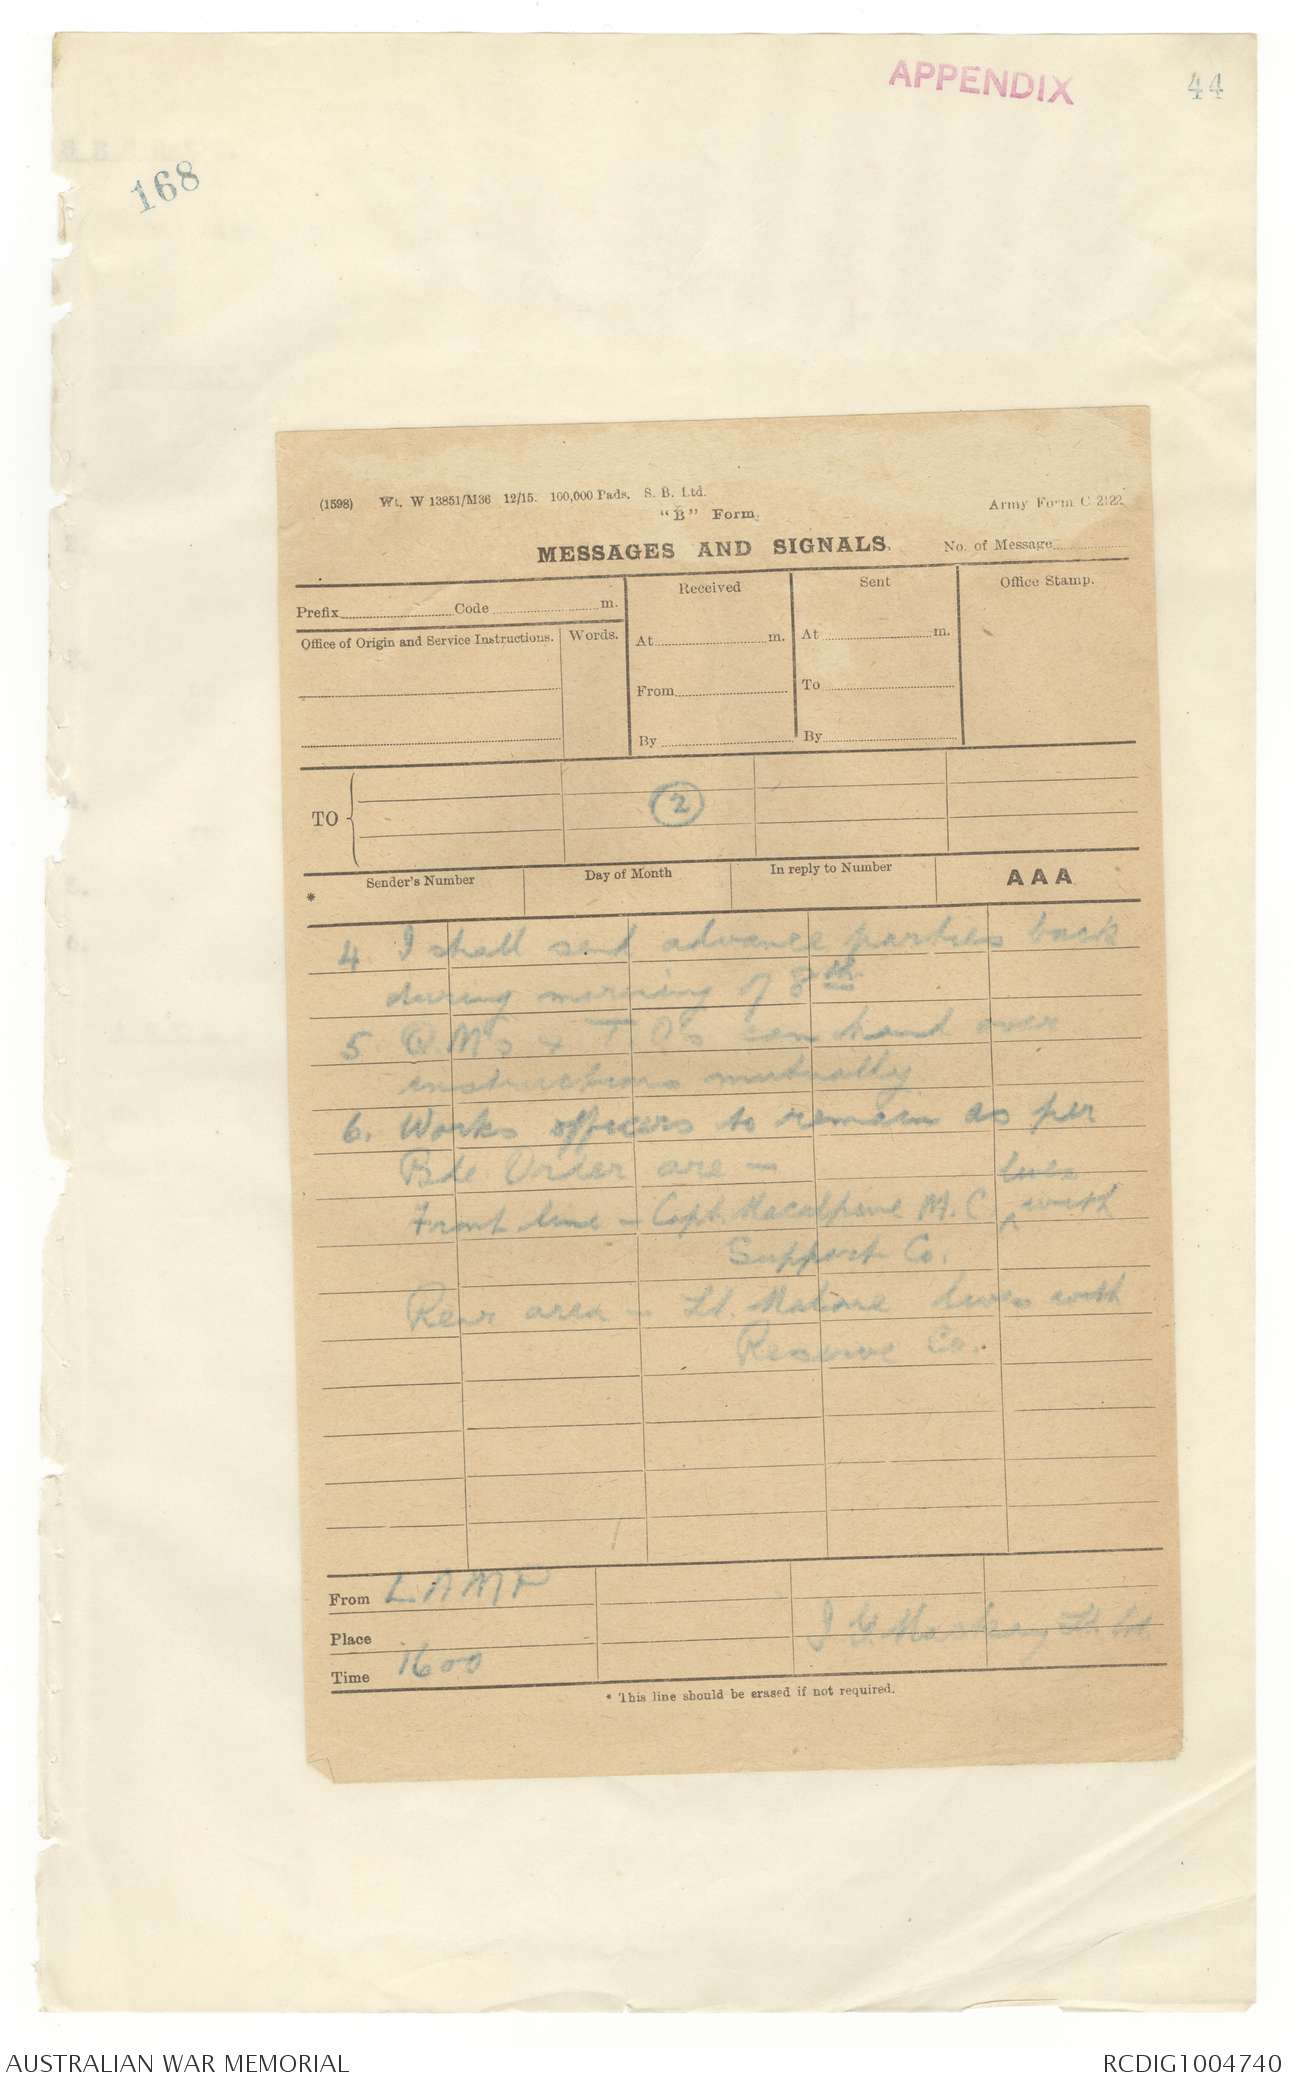 APPENDIX 44
168
(1598) Wt. W 13851/M36 12/15. 100,000 Pads. S. B. Ltd. Army Form C 2122
"B" Form.
MESSAGES AND SIGNALS. No. of Message
Prefix Code m.
Received
Sent
Office Stamp.
Office of Origin and Service Instructions. Words.
At m.
At m.
From
To
By
By
TO
2
* Sender's Number
Day of Month
In reply to Number
AAA
4. I shall send advance parties back
during morning of 8th
5 Q.M's & T.O's can hand over
instructions mutually
6. Works officers to remain as per
Bde Order are -
lives
Front line - Capt. Macalpine M.C with
Support Co.
Rear area - Lt. Malone lives with
Reserve Co.
From LAMP
Place
Time 1600
Lt Col
* This line should be erased if not required.
AUSTRALIAN WAR MEMORIAL RCDIG1004740